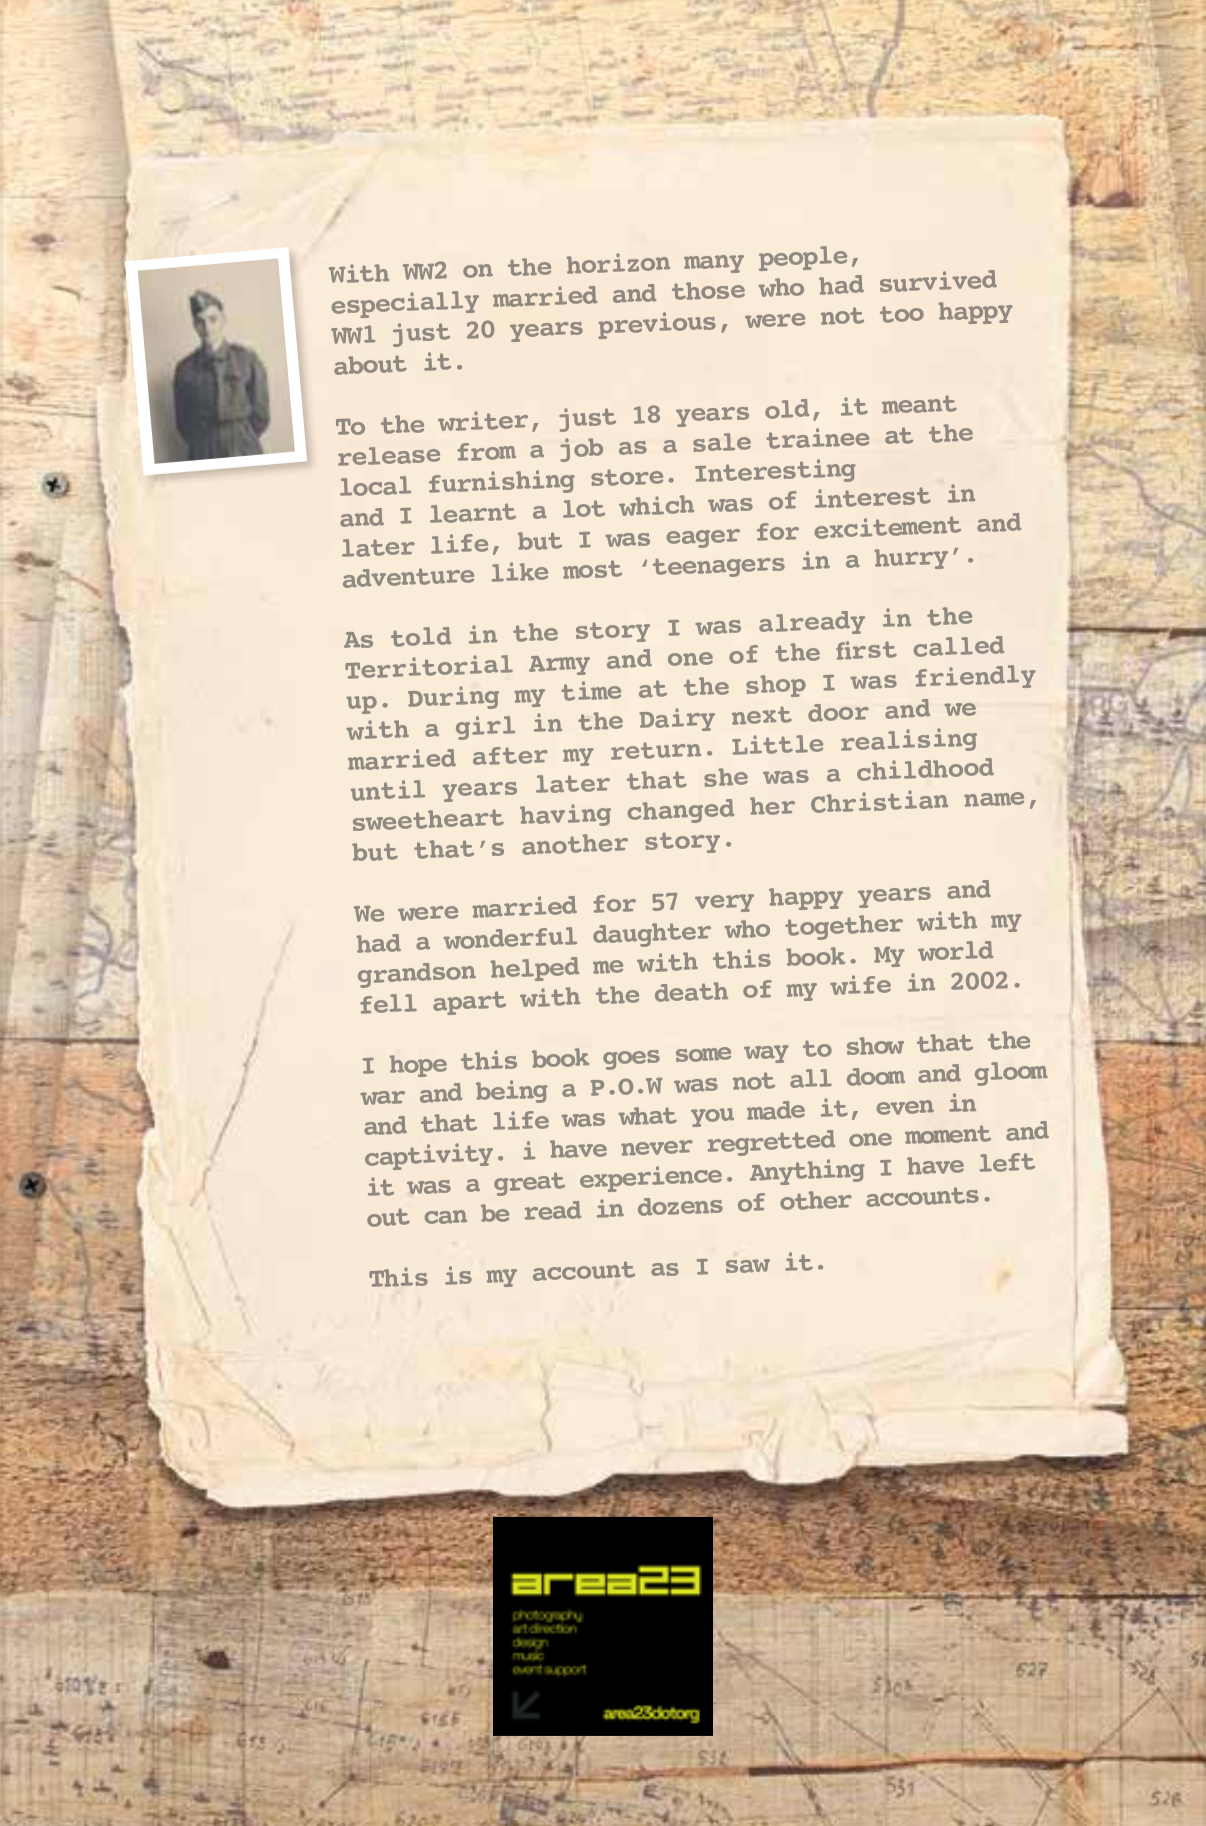 With WW2 on the horizon many people,
especially married and those who had survived
WW1 just 20 years previous, were not too happy
about it.
To the writer, just 18 years old, it meant
release from a job as a sale trainee at the
local furnishing store. Interesting
and I learnt a lot which was of interest in
later life, but I was eager for excitement and
adventure like most ‘teenagers in a hurry’.
As told in the story I was already in the
Territorial Army and one of the first called
up. During my time at the shop I was friendly
with a girl in the Dairy next door and we
married after my return. Little realising
until years later that she was a childhood
sweetheart having changed her Christian name,
but that’s another story.
We were married for 57 very happy years and
had a wonderful daughter who together with my
grandson helped me with this book. My world
fell apart with the death of my wife in 2002.
I hope this book goes some way to show that the
war and being a P.O.W was not all doom and gloom
and that life was what you made it, even in
captivity. i have never regretted one moment and
it was a great experience. Anything I have left
out can be read in dozens of other accounts.
This is my account as I saw it.
area23
photography
art direction
design
music
event support
area23dotorg
627
531
528